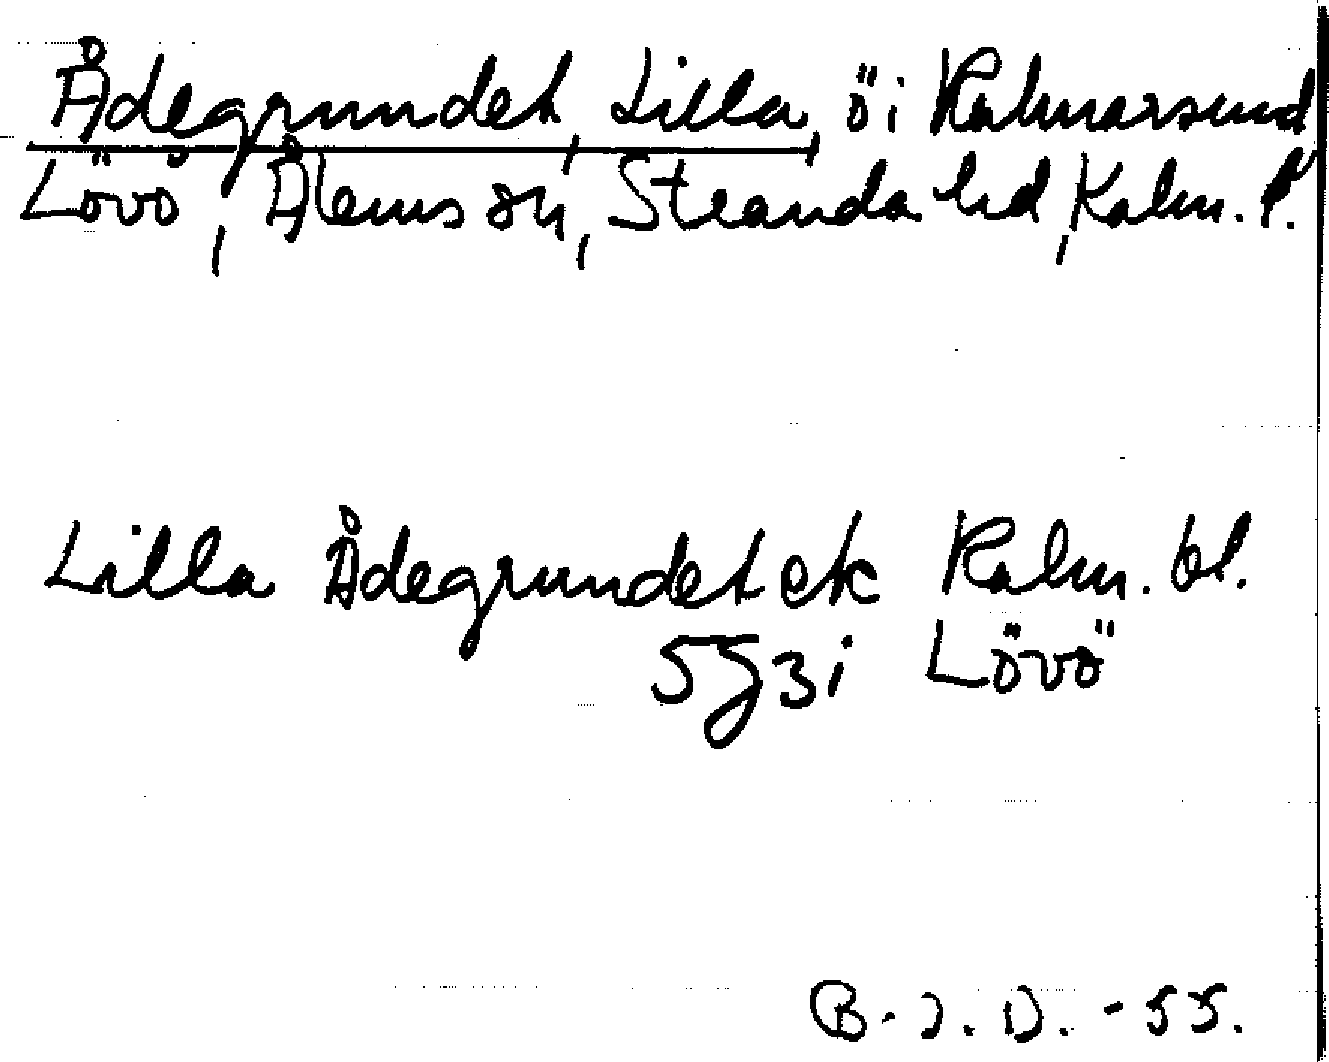 Ådegrundet, Lilla, ö i Kalmarsund
Lövö, Ålems sn, Stranda hd, Kalm. l.
Lilla Ådegrundet ek Kalm. bl.
5g3i Lövö
B. J. D. -55.